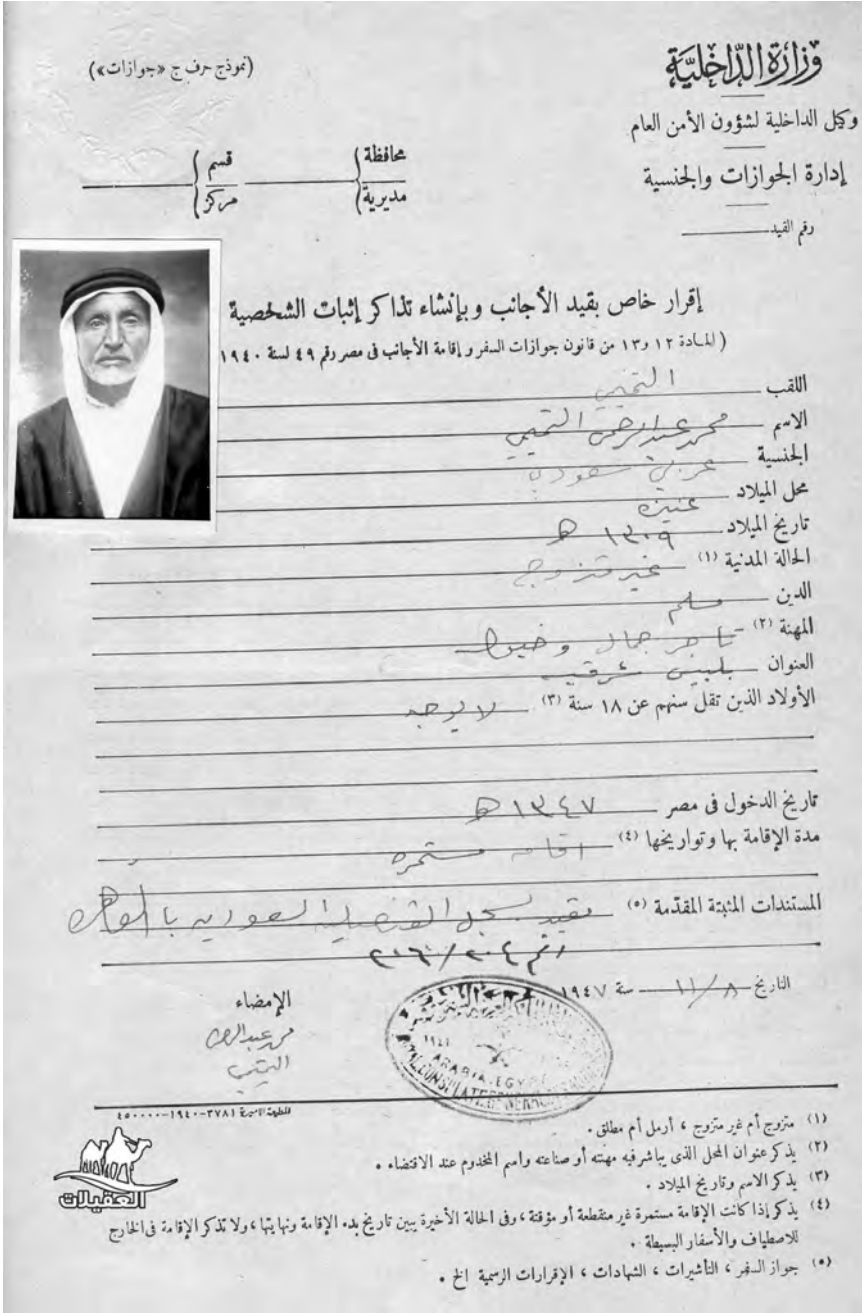 (نموذج حرف ج «جوازات»)
وزارة الداخلية
وكيل الداخلية لشؤون الأمن العام
إدارة الجوازات والجنسية
رقم القيد
محافظة
مديرية
قسم
مركز
إقرار خاص بقيد الأجانب و بإنشاء تذاكر إثبات الشخصية
( المادة ١٢ و ١٣ من قانون جوازات السفر و إقامة الأجانب فى مصر رقم ٤٩ لسنة ١٩٤٠
اللقب التميمي
الاسم محمد عبدالرحمن التميمي
الجنسية عربي سعودي
محل الميلاد عنيزه
تاريخ الميلاد ١٣٠٩ هـ
الحالة المدنية (١) غير متزوج
الدين مسلم
المهنة (٢) تاجر جمال وخيول
العنوان بلبيس شرقيه
الأولاد الذين تقل سنهم عن ١٨ سنة (٣) لا يوجد
تاريخ الدخول فى مصر ١٣٤٧ هـ
مدة الإقامة بها وتواريخها (٤) اقامه مستمره
المستندات المثبتة المقدّمة (٥) بسجل القنصلية السعوديه بالقاهره
التاريخ ١١/٨ سنة ١٩٤٧
الإمضاء
محمد عبدالرحمن
التميمي
١٩٤٧
ARABIA. EGYPT
ROYAL CONSULATE
المطبعة الأميرية ٣٧٨١-١٩٤٠-٤٥٠٠٠٠
(١) متزوج أم غير متزوج ، أرمل أم مطلق .
(٢) يذكر عنوان المحل الذى يباشر فيه مهنته أو صناعته واسم المخدوم عند الاقتضاء .
(٣) يذكر الاسم وتاريخ الميلاد .
(٤) يذكر إذا كانت الإقامة مستمرة غير منقطعة أو مؤقتة ، وفى الحالة الأخيرة يبين تاريخ بدء الإقامة ونهايتها ، ولا تذكر الإقامة فى الخارج
للاصطياف والأسفار البسيطة .
(٥) جواز السفر ، التأشيرات ، الشهادات ، الإقرارات الرسمية الخ .
العقيلات